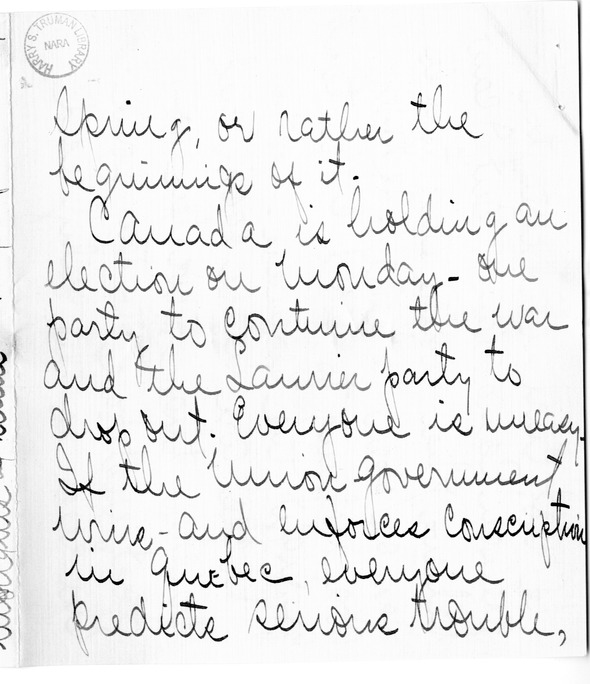 HARRY S. TRUMAN LIBRARY
NARA
Spring, or rather the
beginning of it.
Canada is holding an
election on Monday - One
party to continue the war
and the Laurier party to
drop out. Everyone is uneasy.
If the Union government
wins - and enforces conscription
in Quebec, everyone
predicts serious trouble,